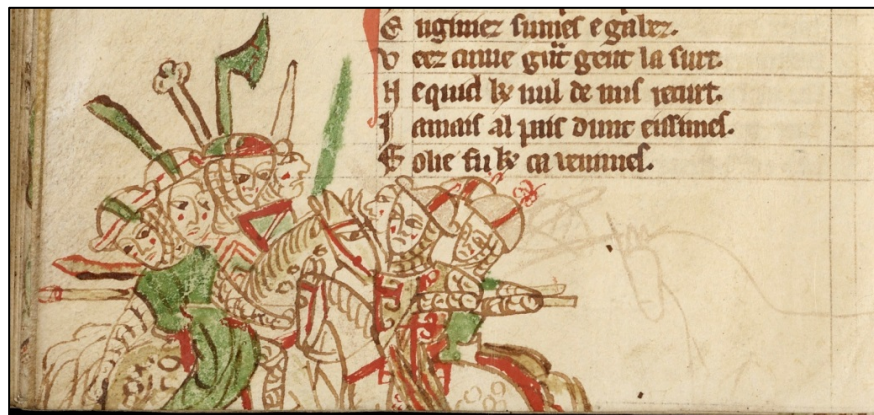 E nginnez sumes e gabez.
V eez cume gͣnt gent la surt.
N e quid ky nul de nus returt.
J amais al pais dunt eissimes.
F olie fu ky ca venimes.